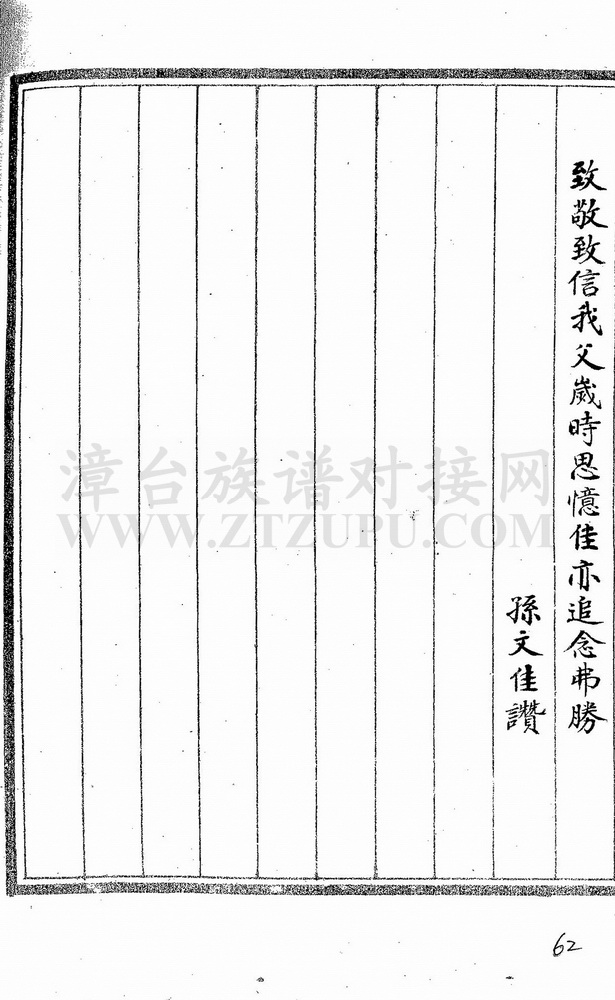 致敬致信我父歲時思憶佳亦追念弗勝
孫文佳讚
漳台族谱对接网
WWW.ZTZUPU.COM
62